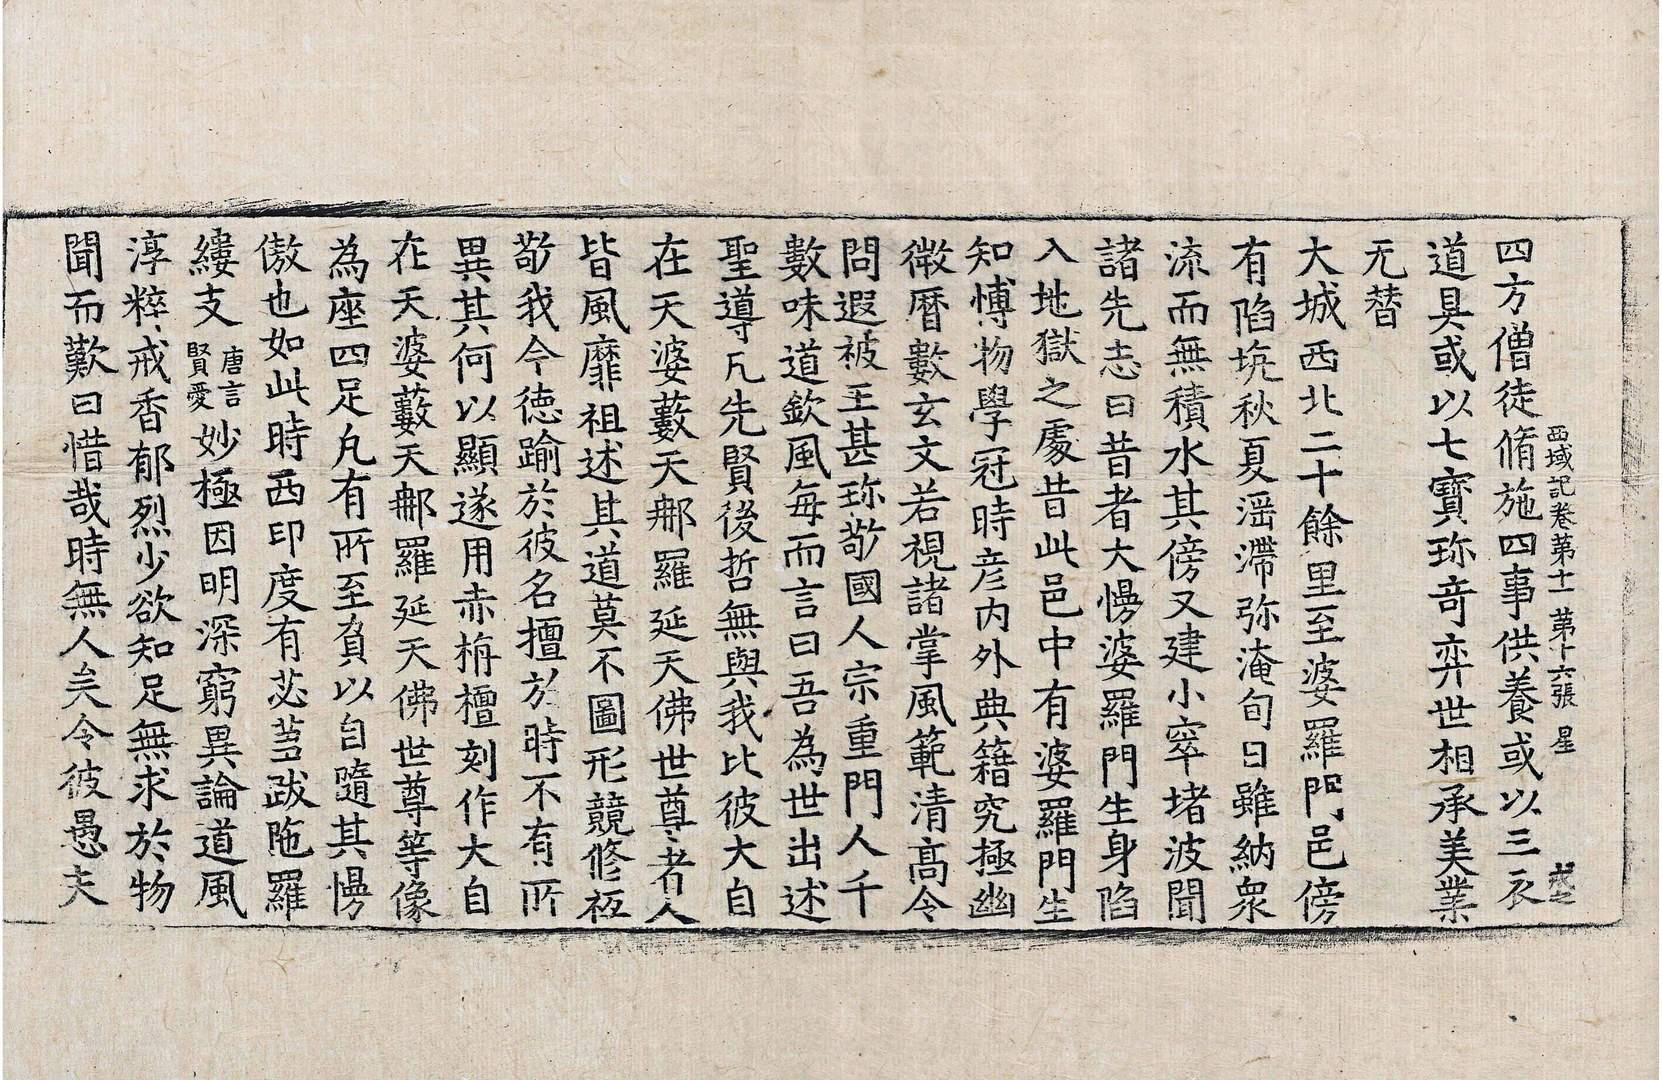 西域記卷第十一 第十六張 星
四方僧徒脩施四事供養或以三衣
道具或以七寶珎奇弈世相承美業
无替
大城西北二十餘里至婆羅門邑傍
有陷坑秋夏滛滯弥淹旬日雖納衆
流而無積水其傍又建小窣堵波聞
諸先志曰昔者大慢婆羅門生身陷
入地獄之處昔此邑中有婆羅門生
知博物學冠時彦内外典籍究極幽
微曆數玄文若視諸掌風範清髙令
問遐被王甚珎敬國人宗重門人千
數味道欽風每而言曰吾為世出述
聖導凡先賢後哲無與我比彼大自
在天婆藪天郍羅延天佛世尊者人
皆風靡祖述其道莫不圖形競修祇
敬我今德踰於彼名擅於時不有所
異其何以顯遂用赤栴檀刻作大自
在天婆藪天郍羅延天佛世尊等像
為座四足凡有所至負以自隨其慢
傲也如此時西印度有苾蒭跋陁羅
縷支唐言賢愛妙極因明深窮異論道風
淳粹戒香郁烈少欲知足無求於物
聞而歎曰惜哉時無人矣令彼愚夫